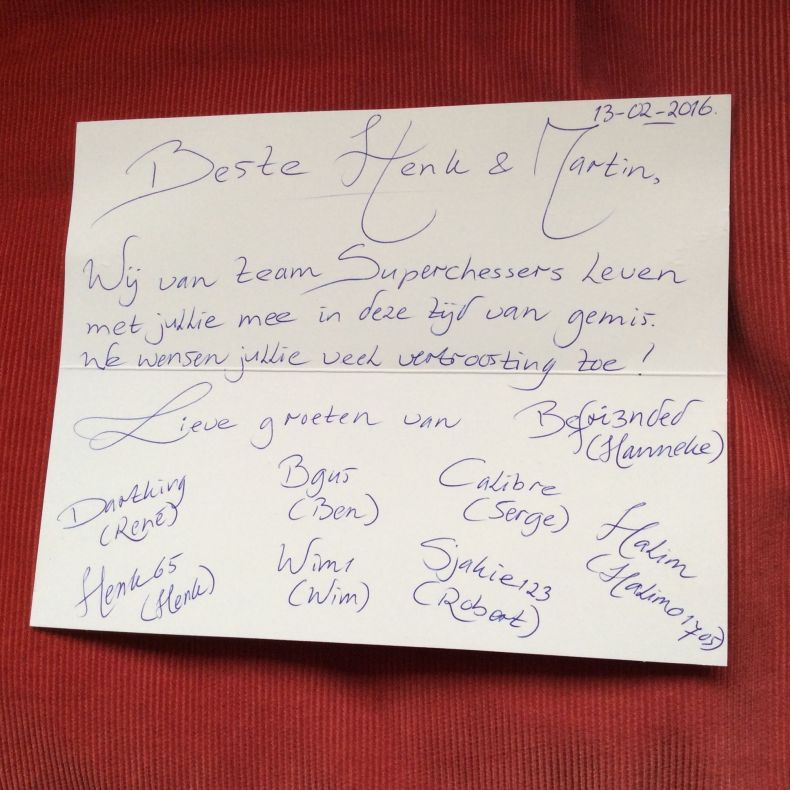 13-02-2016.
Beste Henk & Martin,
Wij van team Superchessers leven
met jullie mee in deze tijd van gemis.
We wensen jullie veel vertroosting toe!
Lieve groeten van
Befri3nded
(Hanneke)
Dartking
(René)
Bgus
(Ben)
Calibre
(Serge)
Halim
(Halim01705)
Henk65
(Henk)
Wim1
(Wim)
Sjakie123
(Robert)